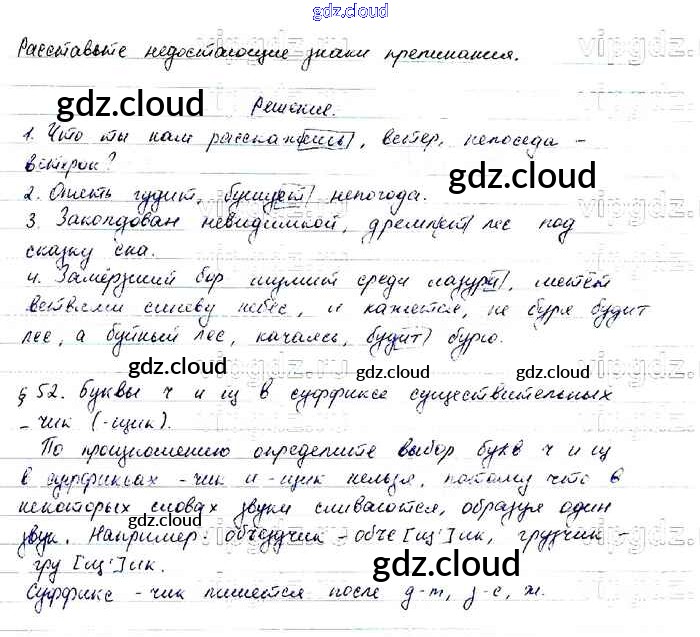 gdz.cloud
Расставьте недостающие знаки препинания.
gdz.cloud
Решение.
1. Что ты нам расскажешь, ветер, непоседа -
gdz.cloud
ветерок?
2. Опять гудит, бушует непогода.
3. Заколдован невидимкой, дремлет лес под
сказку сна.
4. Замёрзший бор шумит среди лазури, метёт
ветвями синеву небес, и кажется, не буря будит
лес, а буйный лес, качаясь, будит бурю.
gdz.cloud gdz.cloud
§ 52. Буквы ч и щ в суффиксе существительных
-чик (-щик).
По произношению определите выбор букв ч и щ
в суффиксах -чик и -щик нельзя, потому что в
некоторых словах звуки сливаются, образуя один
gdz.cloud gdz.cloud
звук. Например: объездчик - объе[щ']ик, грузчик -
гру[щ']ик.
gdz.cloud
Суффикс -чик пишется после д-т, з-с, ж.
gdz.cloud